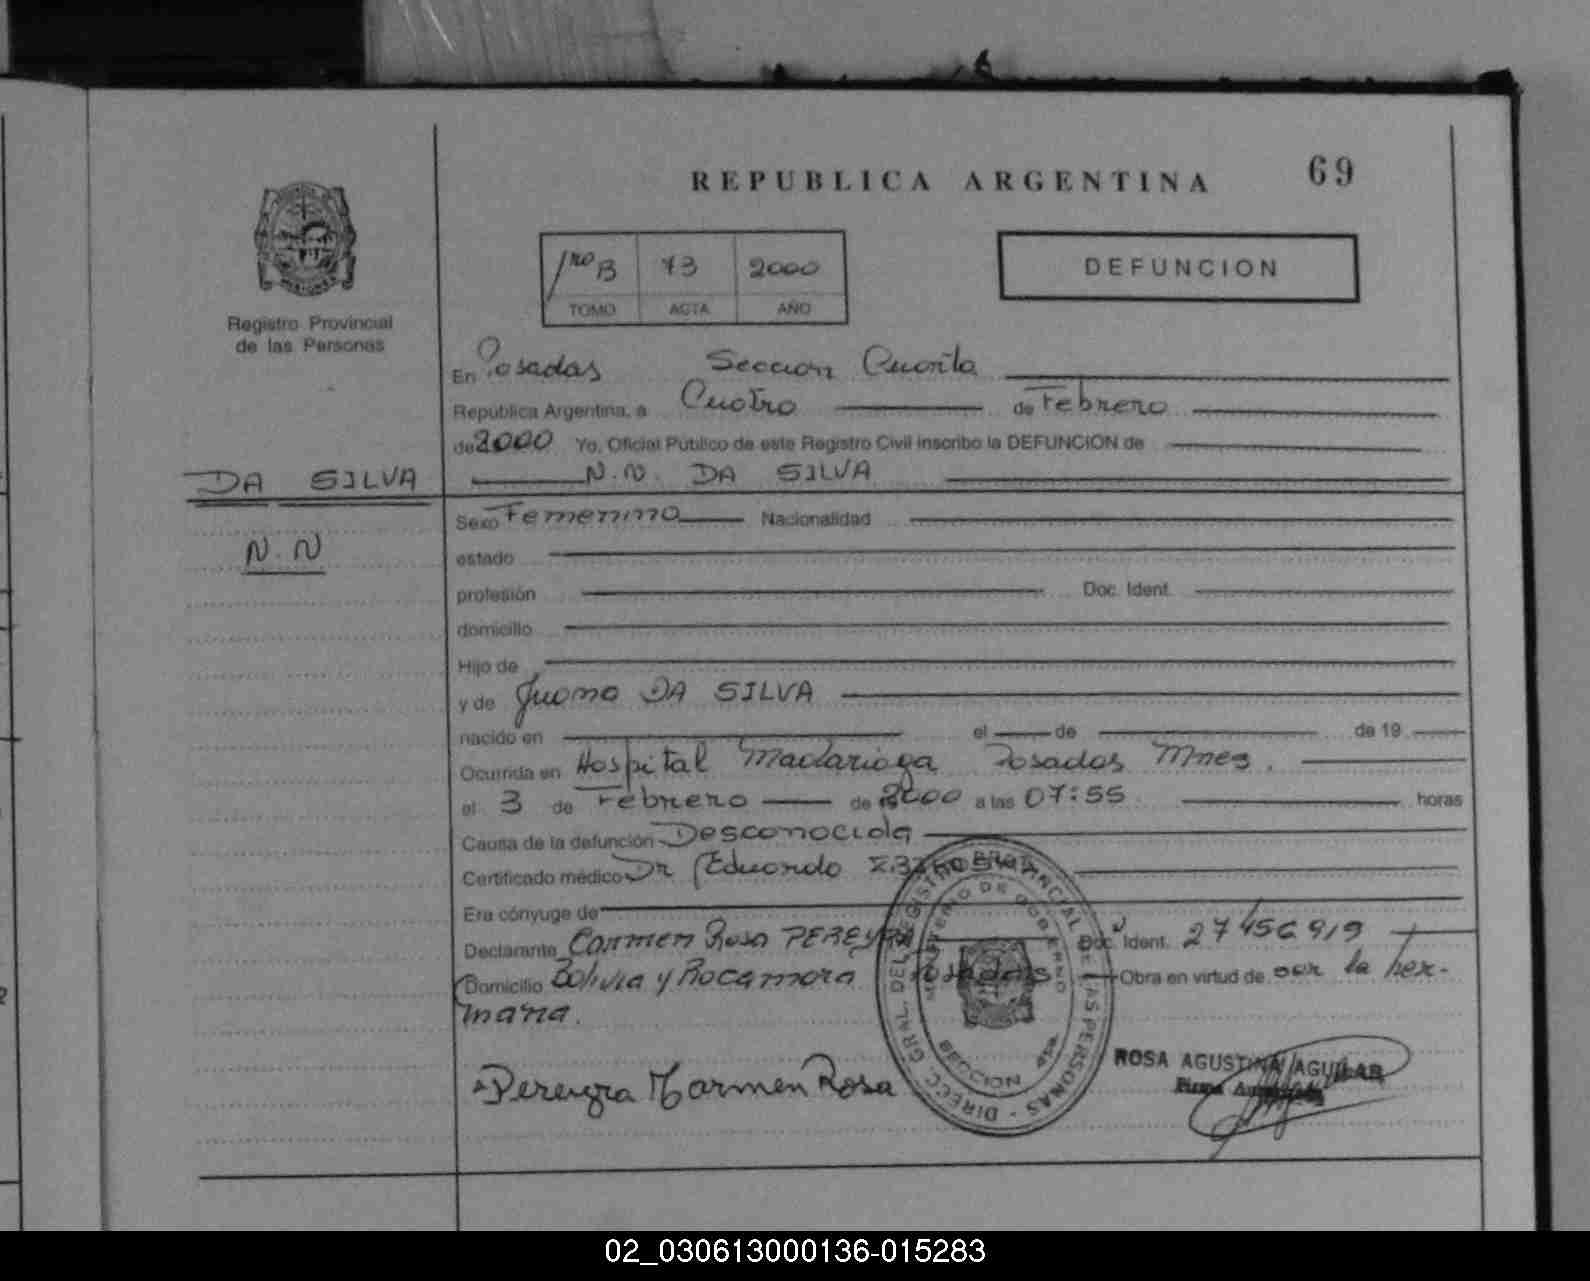 REPUBLICA ARGENTINA 69
1ro B 73 2000
TOMO ACTA AÑO
DEFUNCION
Registro Provincial
de las Personas
En Posadas Seccion Cuarta
República Argentina, a Cuatro de Febrero
de 2000 Yo, Oficial Público de este Registro Civil inscribo la DEFUNCION de
N.N. DA SILVA
DA SILVA
N.N
Sexo Femenino Nacionalidad
estado
profesión Doc. Ident.
domicilio
Hijo de
y de Juana DA SILVA
nacido en el de de 19
Ocurrida en Hospital Madariaga Posadas Mnes.
el 3 de Febrero de 2000 a las 07:55 horas
Causa de la defunción Desconocida
Certificado médico Dr Eduardo
Era cónyuge de
Declarante Carmen Rosa PEREYRA Doc. Ident. 27456919
Domicilio Bolivia y Rocamora Posadas Obra en virtud de ser la her-
mana.
Pereyra Carmen Rosa
ROSA AGUSTINA AGUILAR
Firma
DIREC. GRAL. DEL REGISTRO PROVINCIAL DE LAS PERSONAS
MINISTERIO DE GOBIERNO
SECCION 4ta
02_030613000136-015283